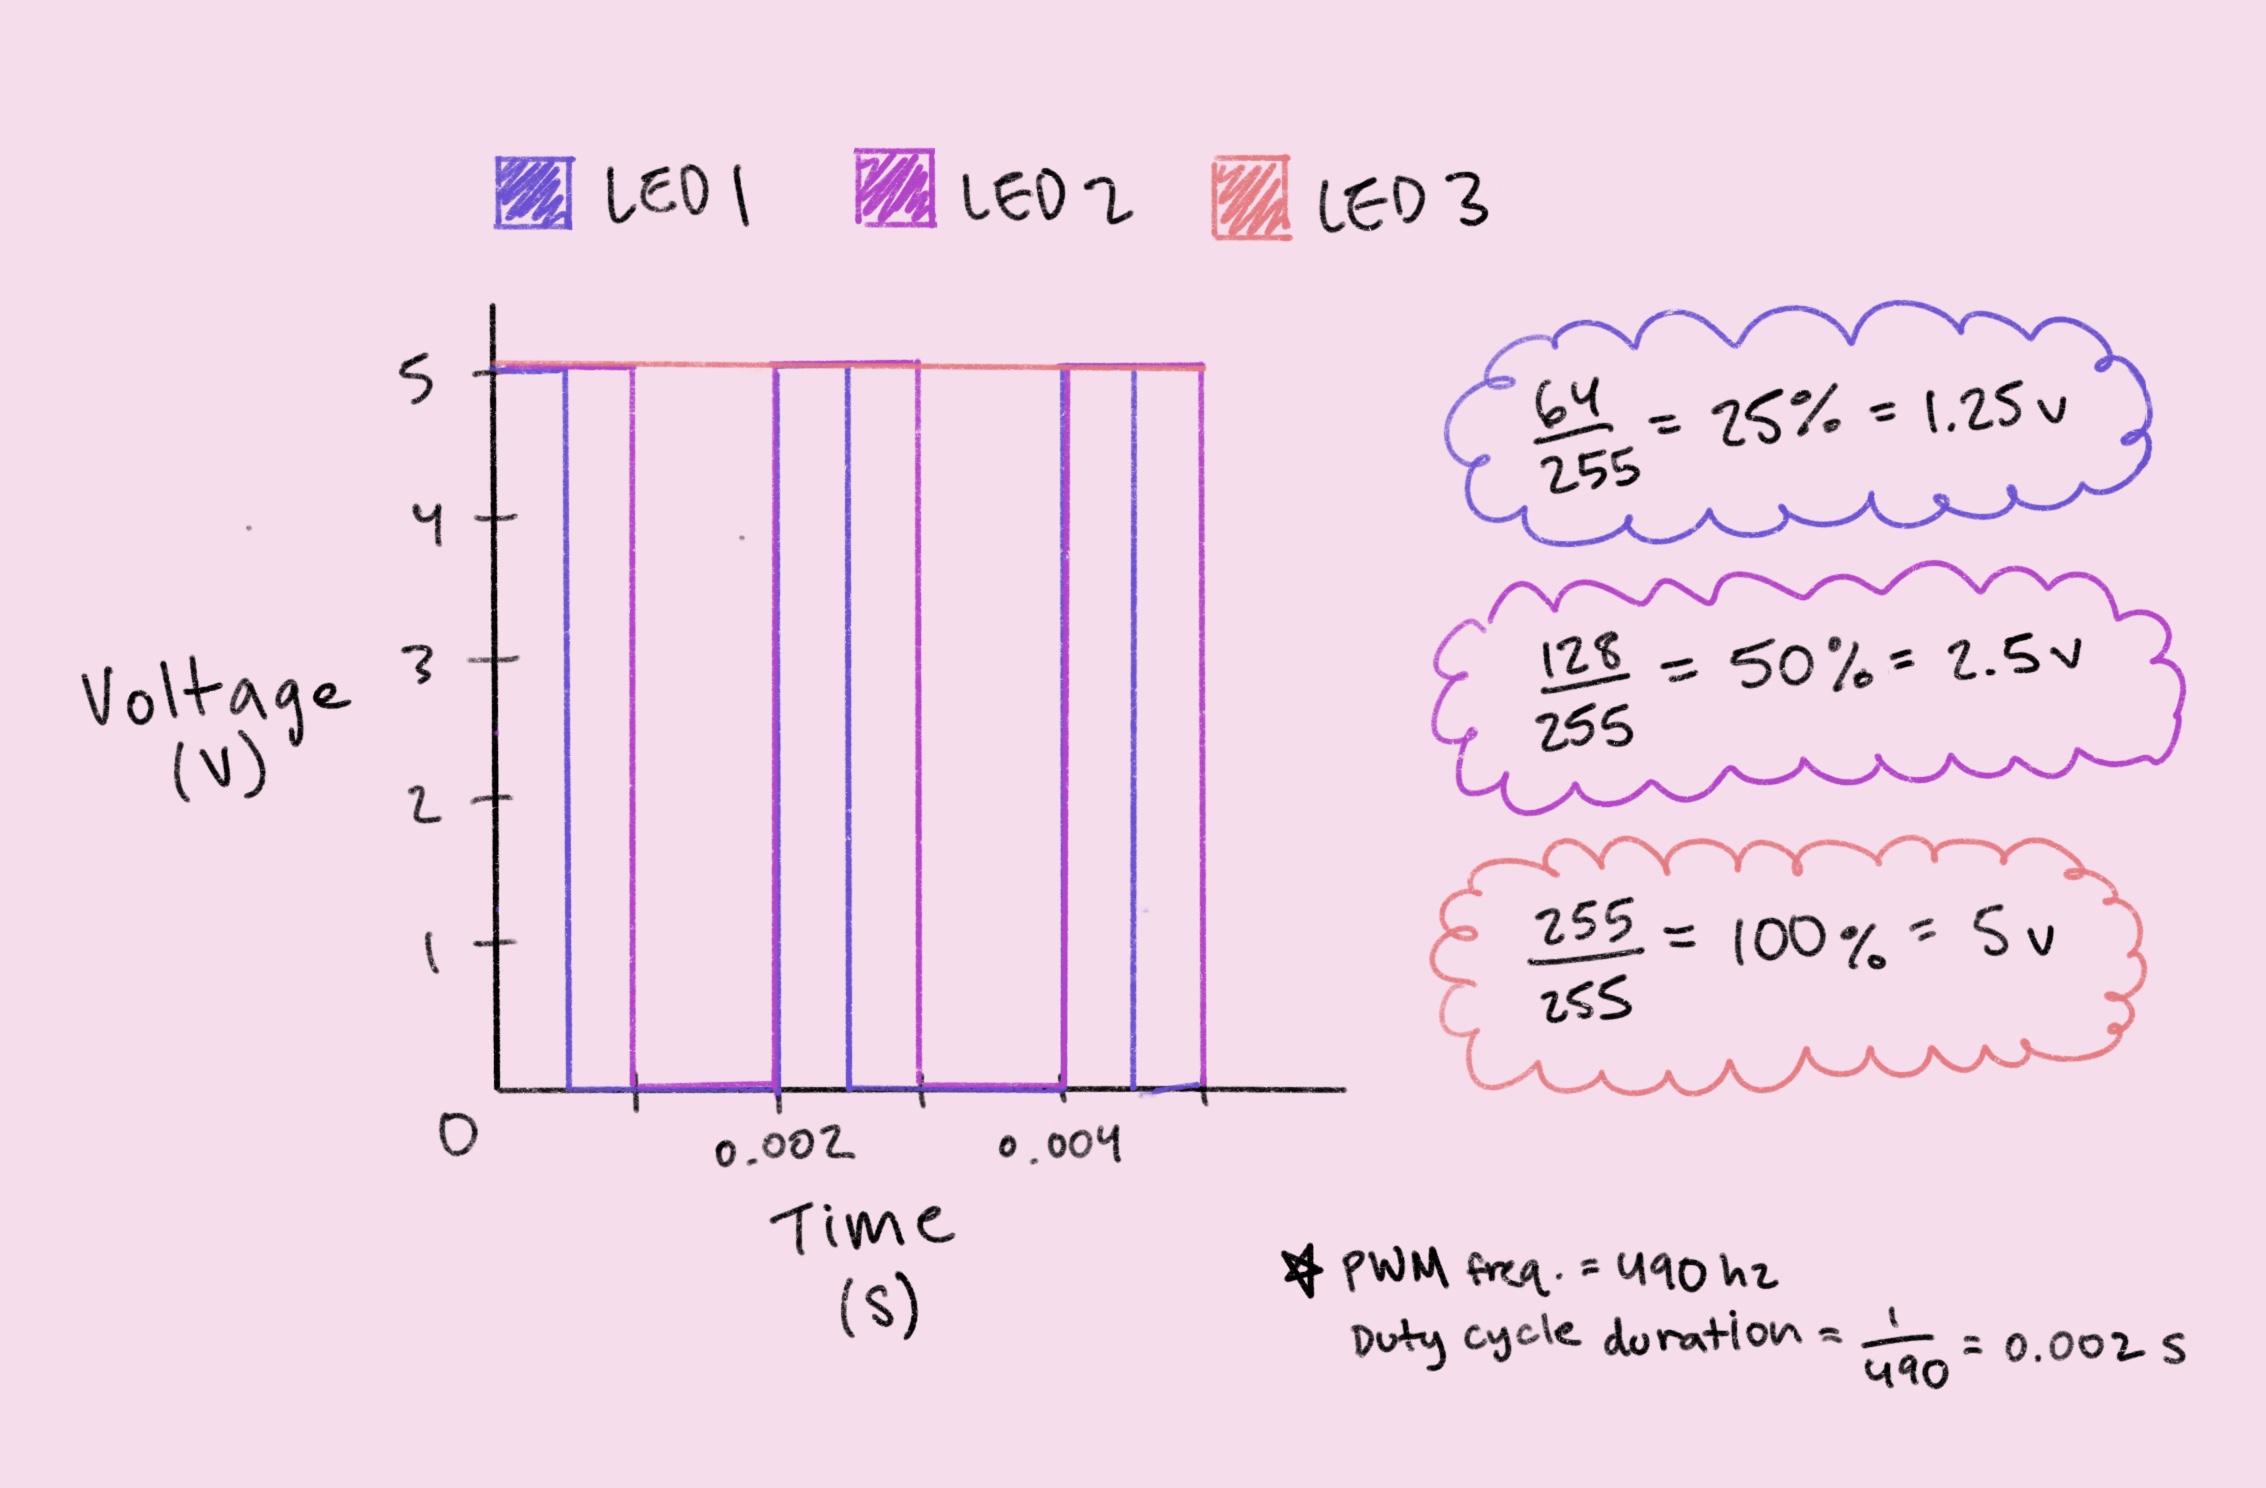 LED 1 LED 2 LED 3
5
4
3
2
1
Voltage
(V)
0
0.002 0.004
Time
(S)
64/255 = 25% = 1.25 v
128/255 = 50% = 2.5 v
255/255 = 100% = 5 v
☆ PWM freq. = 490 hz
Duty cycle duration = 1/490 = 0.002 s